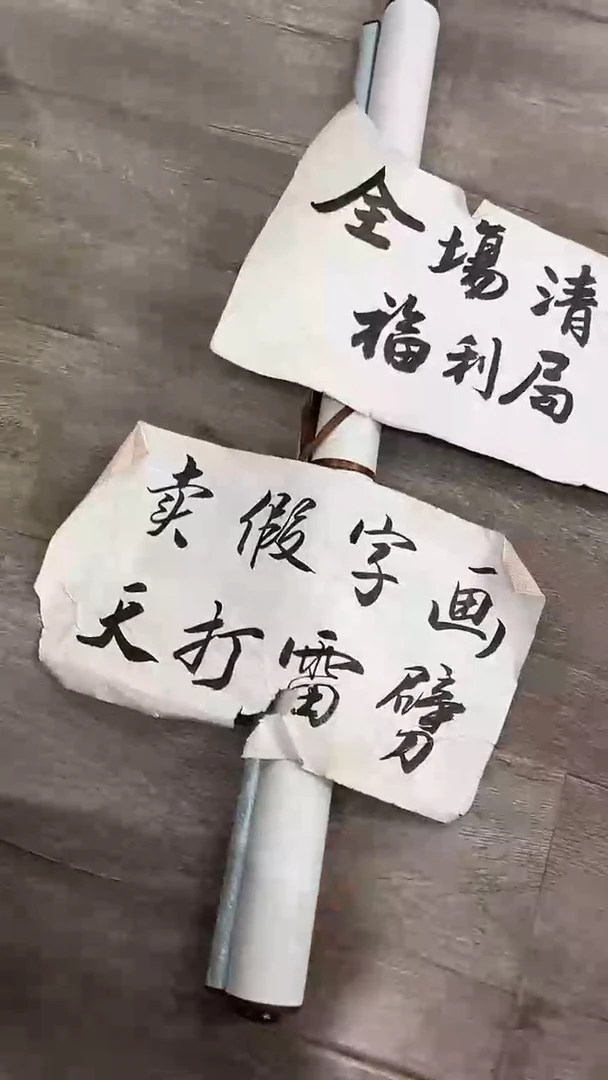 全場清
福利局
卖假字画
天打雷劈